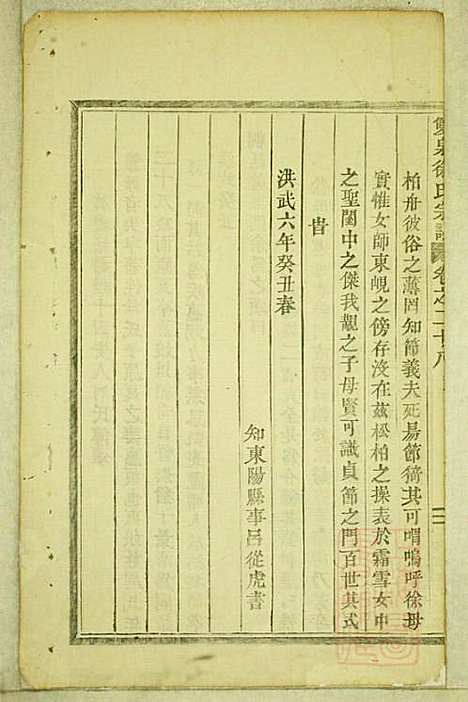 徐氏宗譜 卷之二十八
柏舟彼俗之薄罔知節義夫死易節猗其可喟嗚呼徐母
實惟女師東峴之傍存沒在茲松柏之操表於霜雪女中
之聖閨中之傑我觀之子母賢可識貞節之門百世其式
旹
洪武六年癸丑春
知東陽縣事呂從虎書